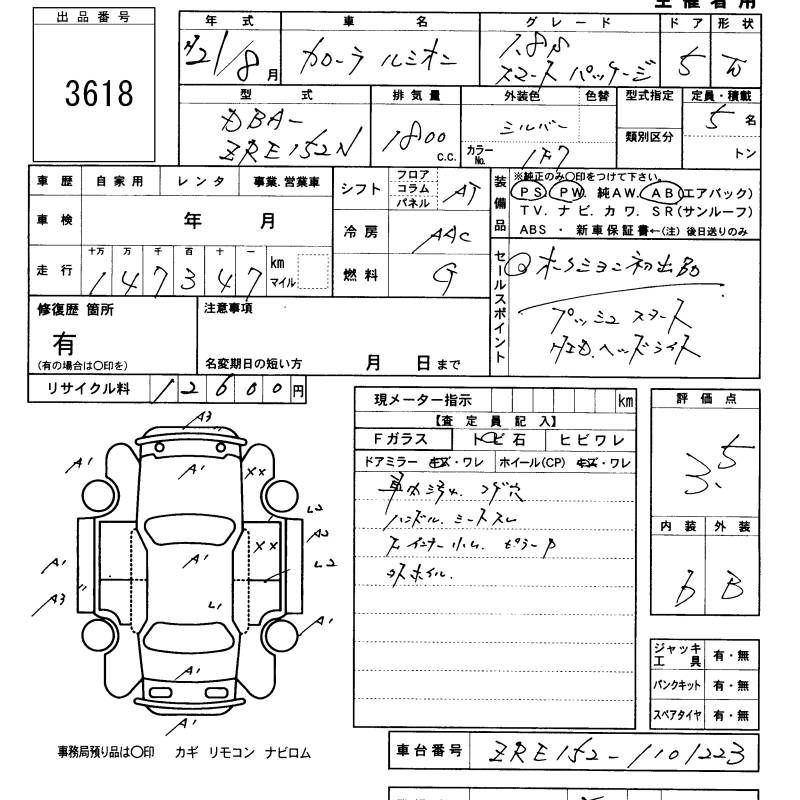 出品番号
3618
年式 車名 グレード ドア 形状
H21/8月 カローラ ルミオン 1.8S スマートパッケージ 5 W
型式 排気量 外装色 色替 型式指定 定員・積載
DBA-ZRE152N 1800 c.c. シルバー 5名
カラーNo. 1F7 類別区分 トン
車歴 自家用 レンタ 事業.営業車
車検 年 月
走行 十万 万 千 百 十 一
147347 km マイル
シフト フロア コラム パネル AT
冷房 AAC
燃料 G
装備品 ※純正のみ〇印をつけて下さい。
PS PW 純AW. AB(エアバック)
TV. ナビ. カワ. SR(サンルーフ)
ABS ・ 新車保証書←(注) 後日送りのみ
セールスポイント
オークション初出品
プッシュスタート
H.I.D.ヘッドライト
修復歴 箇所 注意事項
有
(有の場合は〇印を) 名変期日の短い方 月 日まで
リサイクル料 12600円
現メーター指示 km
【査定員記入】
Fガラス トビ石 ヒビワレ
ドアミラー キズ・ワレ ホイール(CP) キズ・ワレ
車内汚れ. コゲ穴
ハンドル. シートスレ
ホイル.
評価点
3.5
内装 外装
B B
A3
A1 A1 XX
L2
A2
XX
A1 A1 L2
A3 L1
A1
A1
A1
ジャッキ工具 有・無
パンクキット 有・無
スペアタイヤ 有・無
事務局預り品は〇印 カギ リモコン ナビロム
車台番号 ZRE152-1101223